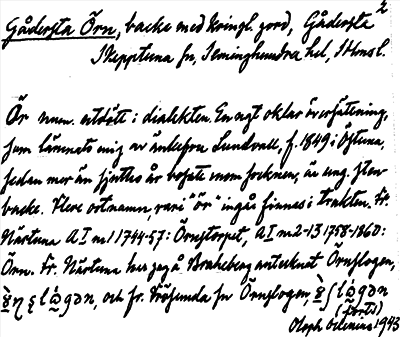 Gådersta Örn, backe med kringl. gård, Gådersta 2
Skepptuna sn, Seminghundra hd, Sthmsl.
Ör numn. utdött i dialekten. En ngt oklar översättning,
som lämnats mig av änkefru Lundvall, f. 1849 i Östuna,
sedan mer än fjorttio år bofast inom socknen, är ung. sten-
backe. Flere ortnamn, vari "ör" ingå finnes i trakten. Fr.
Närtuna A I m 1 1744-57: Örnstorpet, A I m 2-13 1758-1860:
Örn. Fr. Närtuna har jag å Braheberg antecknat Örnslogen,
och fr. Frösunda sn Örnslogen,
Oloph Odenius 1943